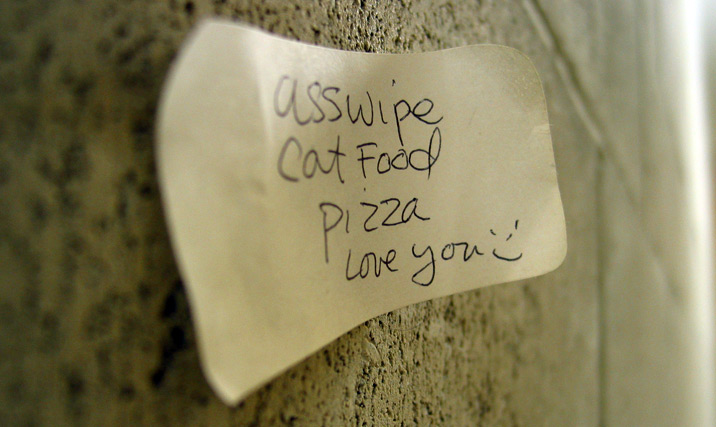 asswipe
Cat Food
pizza
love you :)